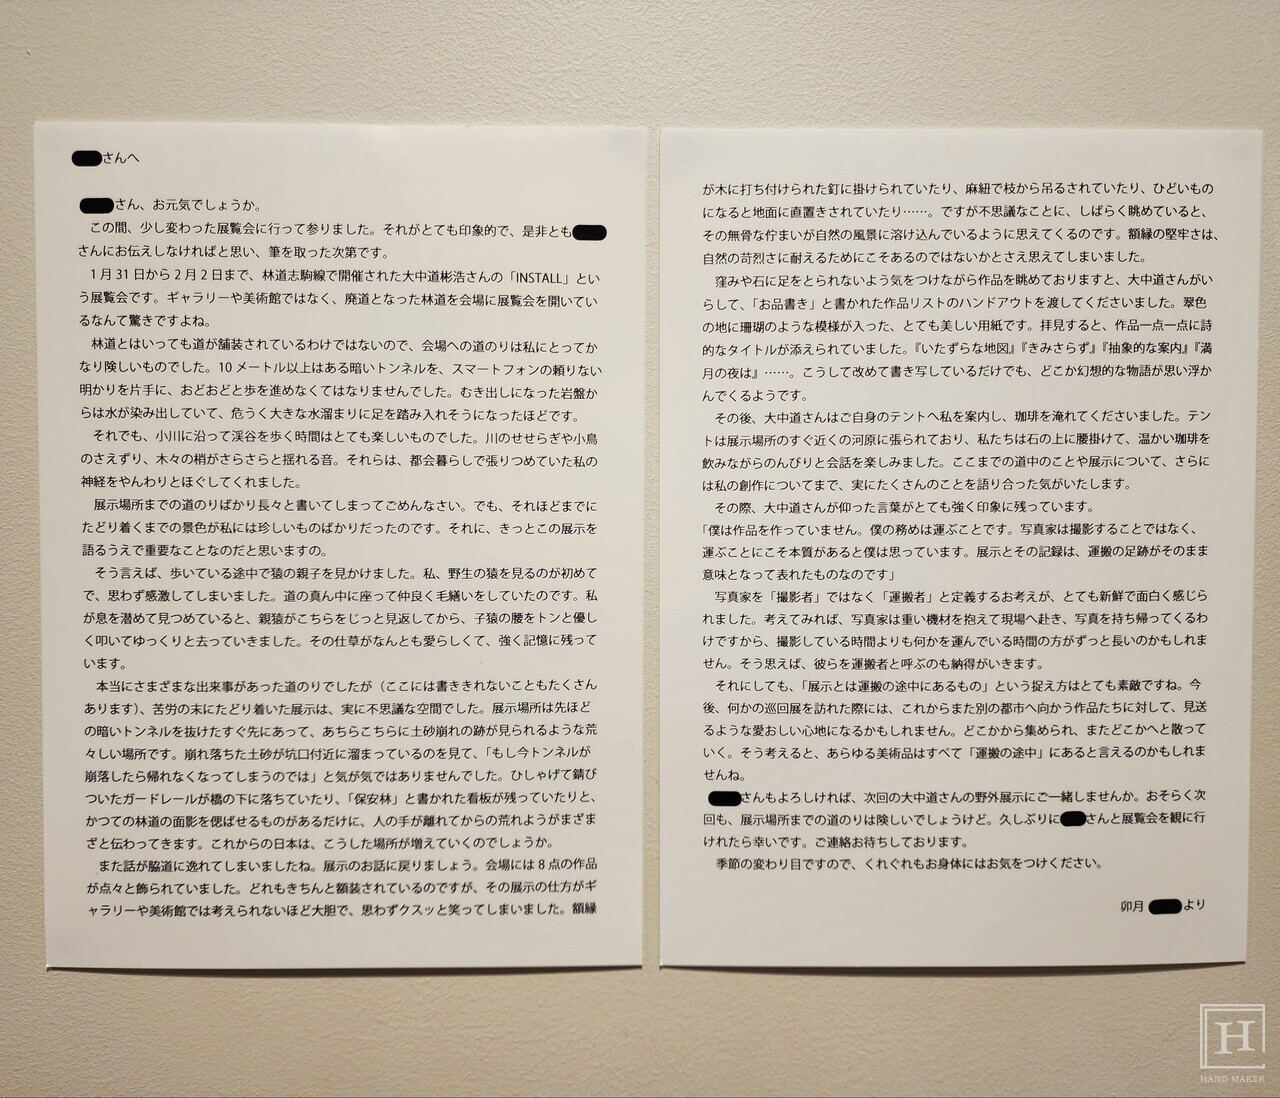 さんへ
さん、お元気でしょうか。
この間、少し変わった展覧会に行って参りました。それがとても印象的で、是非とも
さんにお伝えしなければと思い、筆を取った次第です。
1月31日から2月2日まで、林道志駒線で開催された大中道彬浩さんの「INSTALL」とい
う展覧会です。ギャラリーや美術館ではなく、廃道となった林道を会場に展覧会を開いてい
るなんて驚きですよね。
林道とはいっても道が舗装されているわけではないので、会場への道のりは私にとってか
なり険しいものでした。10メートル以上はある暗いトンネルを、スマートフォンの頼りない
明かりを片手に、おどおどと歩を進めなくてはなりませんでした。むき出しになった岩盤か
らは水が染み出していて、危うく大きな水溜まりに足を踏み入れそうになったほどです。
それでも、小川に沿って渓谷を歩く時間はとても楽しいものでした。川のせせらぎや小鳥
のさえずり、木々の梢がさらさらと揺れる音。それらは、都会暮らしで張りつめていた私の
神経をやんわりとほぐしてくれました。
展示場所までの道のりばかり長々と書いてしまってごめんなさい。でも、それほどまでに
たどり着くまでの景色が私には珍しいものばかりだったのです。それに、きっとこの展示を
語るうえで重要なことなのだと思いますの。
そう言えば、歩いている途中で猿の親子を見かけました。私、野生の猿を見るのが初めて
で、思わず感激してしまいました。道の真ん中に座って仲良く毛繕いをしていたのです。私
が息を潜めて見つめていると、親猿がこちらをじっと見返してから、子猿の腰をトンと優し
く叩いてゆっくりと去っていきました。その仕草がなんとも愛らしくて、強く記憶に残って
います。
本当にさまざまな出来事があった道のりでしたが（ここには書ききれないこともたくさん
あります）、苦労の末にたどり着いた展示は、実に不思議な空間でした。展示場所は先ほど
の暗いトンネルを抜けたすぐ先にあって、あちらこちらに土砂崩れの跡が見られるような荒
々しい場所です。崩れ落ちた土砂が坑口付近に溜まっているのを見て、「もし今トンネルが
崩落したら帰れなくなってしまうのでは」と気が気ではありませんでした。ひしゃげて錆び
ついたガードレールが橋の下に落ちていたり、「保安林」と書かれた看板が残っていたりと、
かつての林道の面影を偲ばせるものがあるだけに、人の手が離れてからの荒れようがまざま
ざと伝わってきます。これからの日本は、こうした場所が増えていくのでしょうか。
また話が脇道に逸れてしまいましたね。展示のお話に戻りましょう。会場には8点の作品
が点々と飾られていました。どれもきちんと額装されているのですが、その展示の仕方がギ
ャラリーや美術館では考えられないほど大胆で、思わずクスッと笑ってしまいました。額縁
が木に打ち付けられた釘に掛けられていたり、麻紐で枝から吊るされていたり、ひどいもの
になると地面に直置きされていたり……。ですが不思議なことに、しばらく眺めていると、
その無骨な佇まいが自然の風景に溶け込んでいるように思えてくるのです。額縁の堅牢さは、
自然の苛烈さに耐えるためにこそあるのではないかとさえ思えてしまいました。
窪みや石に足をとられないよう気をつけながら作品を眺めておりますと、大中道さんがい
らして、「お品書き」と書かれた作品リストのハンドアウトを渡してくださいました。翠色
の地に珊瑚のような模様が入った、とても美しい用紙です。拝見すると、作品一点一点に詩
的なタイトルが添えられていました。『いたずらな地図』『きみさらず』『抽象的な案内』『満
月の夜は』……。こうして改めて書き写しているだけでも、どこか幻想的な物語が思い浮か
んでくるようです。
その後、大中道さんはご自身のテントへ私を案内し、珈琲を淹れてくださいました。テン
トは展示場所のすぐ近くの河原に張られており、私たちは石の上に腰掛けて、温かい珈琲を
飲みながらのんびりと会話を楽しみました。ここまでの道中のことや展示について、さらに
は私の創作についてまで、実にたくさんのことを語り合った気がいたします。
その際、大中道さんが仰った言葉がとても強く印象に残っています。
「僕は作品を作っていません。僕の務めは運ぶことです。写真家は撮影することではなく、
運ぶことにこそ本質があると僕は思っています。展示とその記録は、運搬の足跡がそのまま
意味となって表れたものなのです」
写真家を「撮影者」ではなく「運搬者」と定義するお考えが、とても新鮮で面白く感じら
れました。考えてみれば、写真家は重い機材を抱えて現場へ赴き、写真を持ち帰ってくるわ
けですから、撮影している時間よりも何かを運んでいる時間の方がずっと長いのかもしれま
せん。そう思えば、彼らを運搬者と呼ぶのも納得がいきます。
それにしても、「展示とは運搬の途中にあるもの」という捉え方はとても素敵ですね。今
後、何かの巡回展を訪れた際には、これからまた別の都市へ向かう作品たちに対して、見送
るような愛おしい心地になるかもしれません。どこかから集められ、またどこかへと散って
いく。そう考えると、あらゆる美術品はすべて「運搬の途中」にあると言えるのかもしれま
せんね。
さんもよろしければ、次回の大中道さんの野外展示にご一緒しませんか。おそらく次
回も、展示場所までの道のりは険しいでしょうけど。久しぶりにさんと展覧会を観に行
けれたら幸いです。ご連絡お待ちしております。
季節の変わり目ですので、くれぐれもお身体にはお気をつけください。
卯月 より
H
HAND MAKER